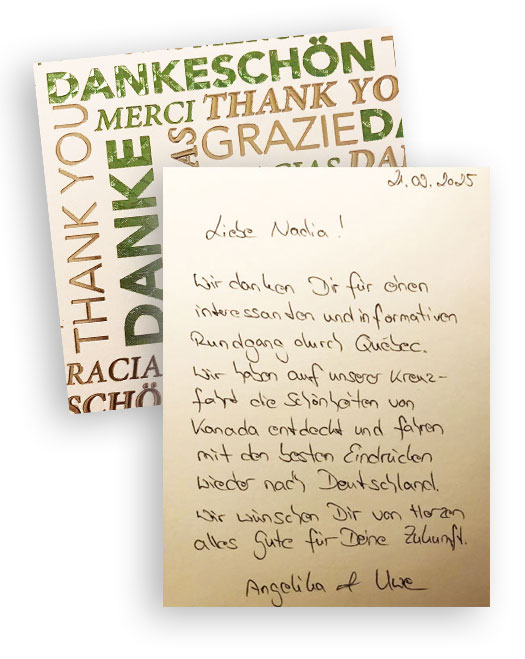 DANKESCHÖN
MERCI THANK YO
GRAZIE
THANK YOU
DANKE
DAN
RACIA
SCHÖ
21.09.2025
Liebe Nadia!
Wir danken Dir für einen
interessanten und informativen
Rundgang durch Québec.
Wir haben auf unserer Kreuz-
fahrt die Schönheiten von
Kanada entdeckt und fahren
mit den besten Eindrücken
wieder nach Deutschland.
Wir wünschen Dir von Herzen
alles Gute für Deine Zukunft.
Angelika & Uwe